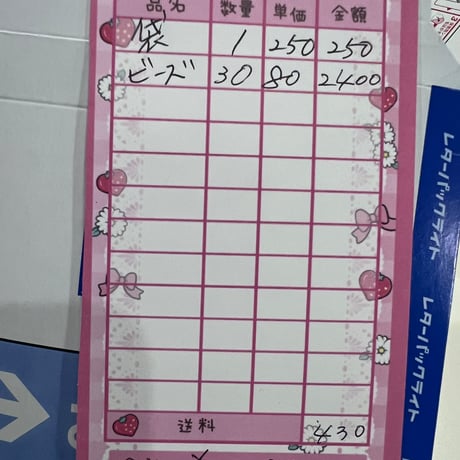 品名 数量 単価 金額
袋 1 250 250
ビーズ 30 80 2400
送料 430
レターパックライト
レターパックライト